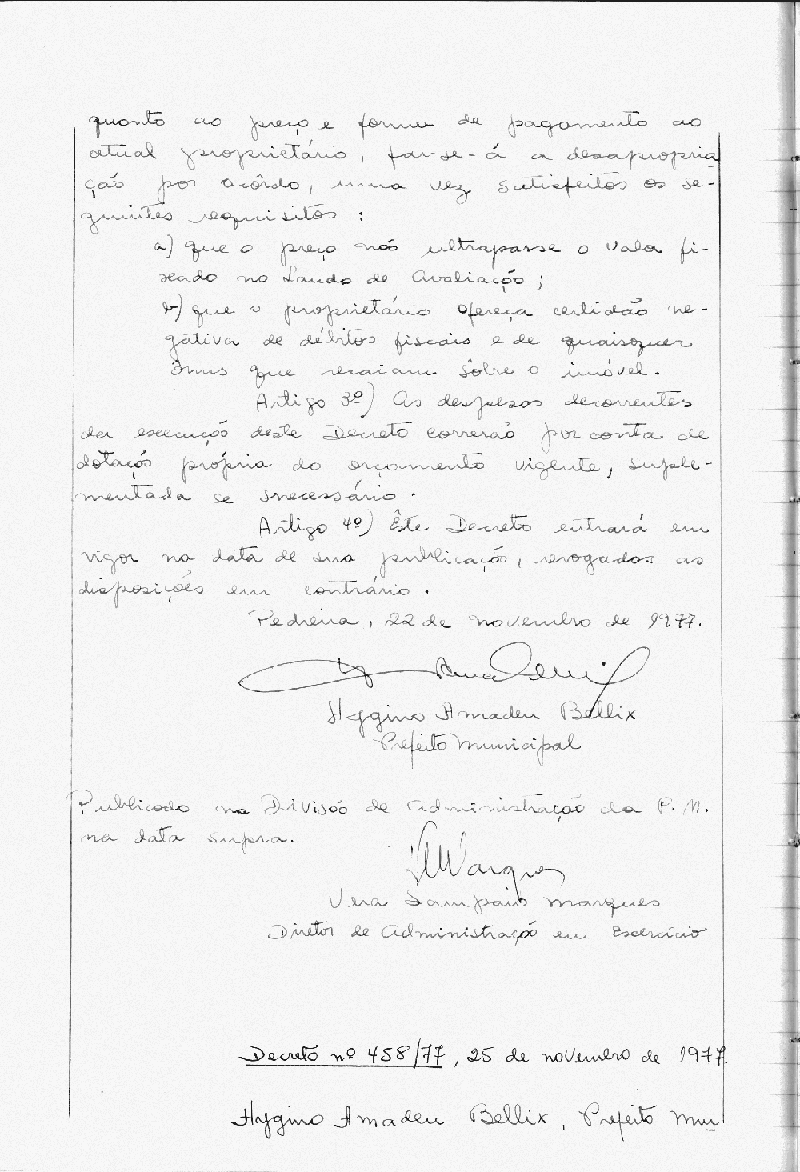 quanto ao preço e forma de pagamento ao
atual proprietário, far-se-á a desapropria
ção por acôrdo, uma vez satisfeitos os se-
guintes requisitos :
a) que o preço não ultrapasse o valor fi-
xado no Laudo de Avaliação ;
b) que o proprietário ofereça certidão ne-
gativa de débitos fiscais e de quaisquer
ônus que recaiam sôbre o imóvel.
Artigo 3º) As despesas decorrentes
da execução deste Decreto correrão por conta de
dotação própria do orçamento vigente, suple-
mentada se necessário.
Artigo 4º) Êste Decreto entrará em
vigor na data de sua publicação, revogadas as
disposições em contrário.
Pedreira, 22 de novembro de 1977.
Hygino Amadeu Bellix
Prefeito Municipal
Publicado na Divisão de Administração da P. M.
na data supra.
VMarques
Vera Sampaio Marques
Diretor de Administração em Exercício
Decreto nº 458/77, 25 de novembro de 1977.
Hygino Amadeu Bellix, Prefeito Mun